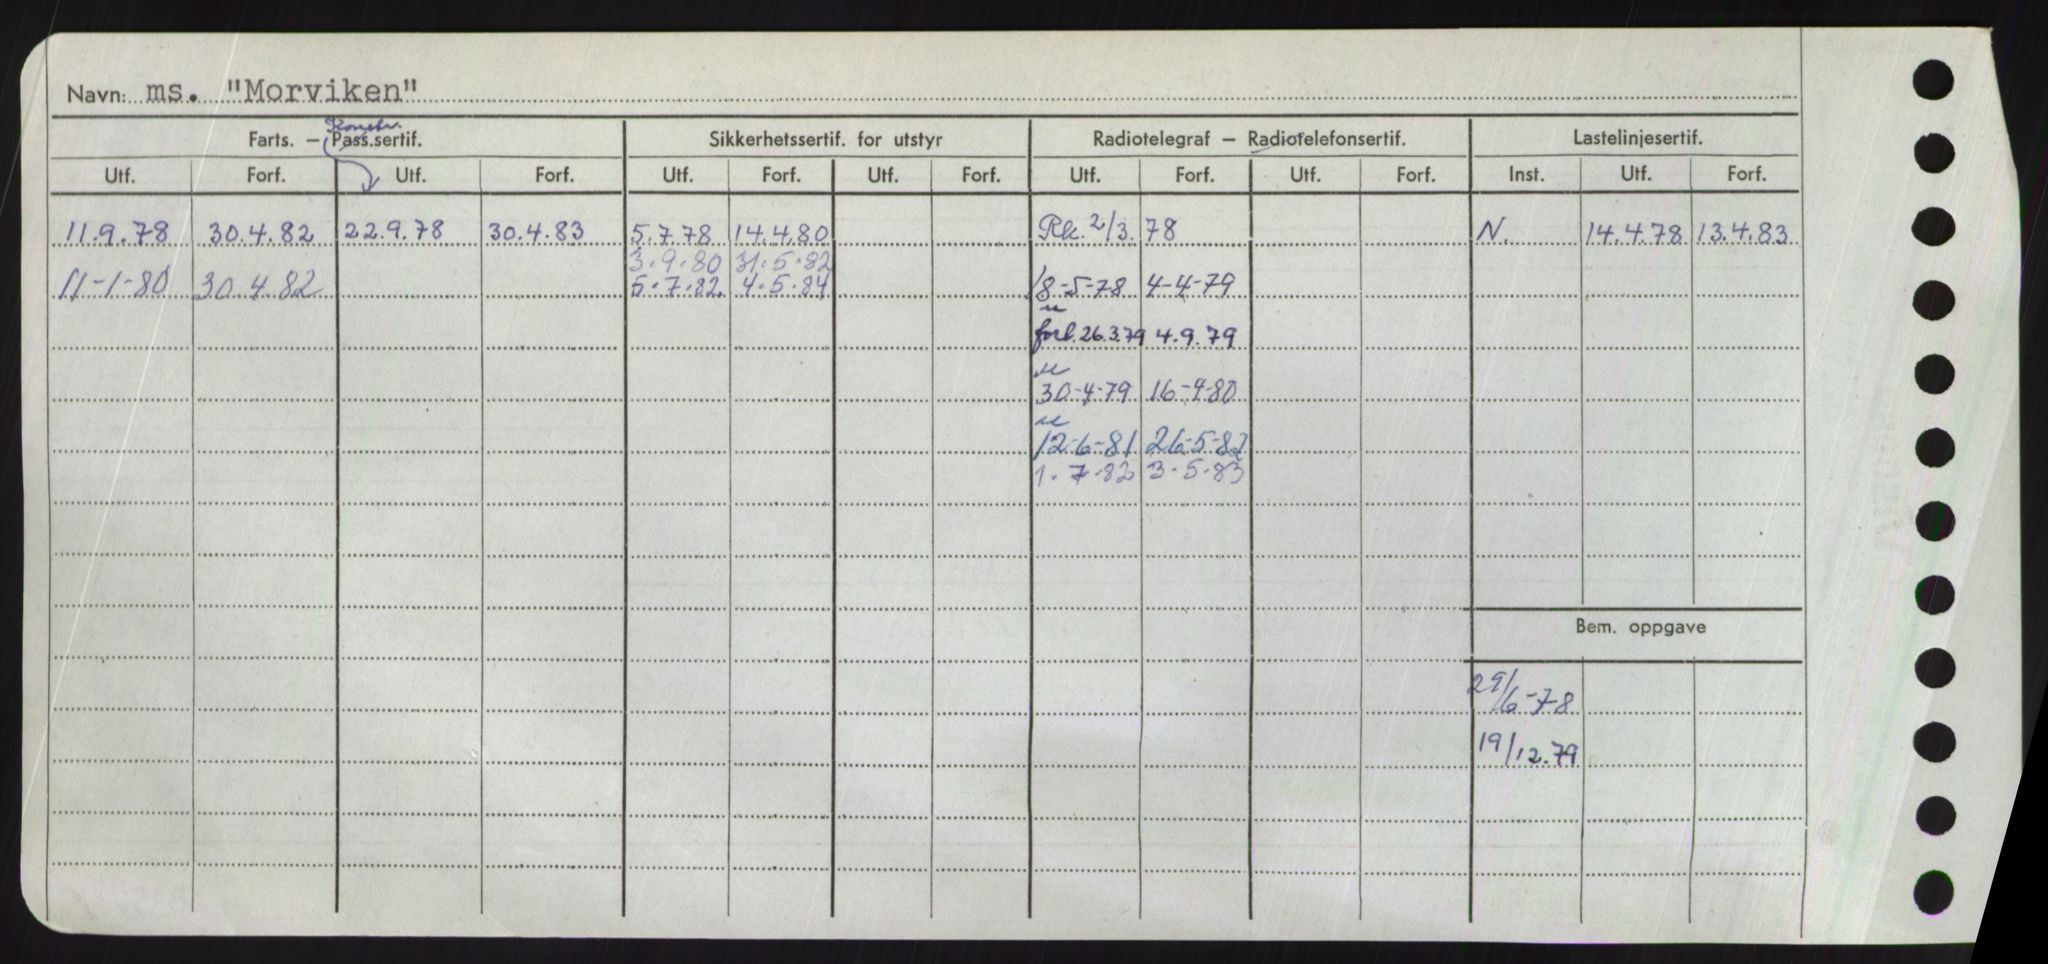 Navn: ms. "Morviken"
Konstr.
Farts. — Pass.sertif. Sikkerhetssertif. for utstyr Radiotelegraf — Radiotelefonsertif. Lastelinjesertif.
Utf. Forf. Utf. Forf. Utf. Forf. Utf. Forf. Utf. Forf. Utf. Forf. Inst. Utf. Forf.
11.9.78 30.4.82 22.9.78 30.4.83 5.7.78 14.4.80 Rk. 2/3.78 N. 14.4.78 13.4.83
3.9.80 31.5.82
11-1-80 30.4.82 5.7.82 4.5.84 18-5-78 4-4-79
forl. 26.3.79 4.9.79
30-4-79 16-4-80
12-6-81 26-5-82
1.7.82 3.5.83
Bem. oppgave
29/6-78
19/12.79